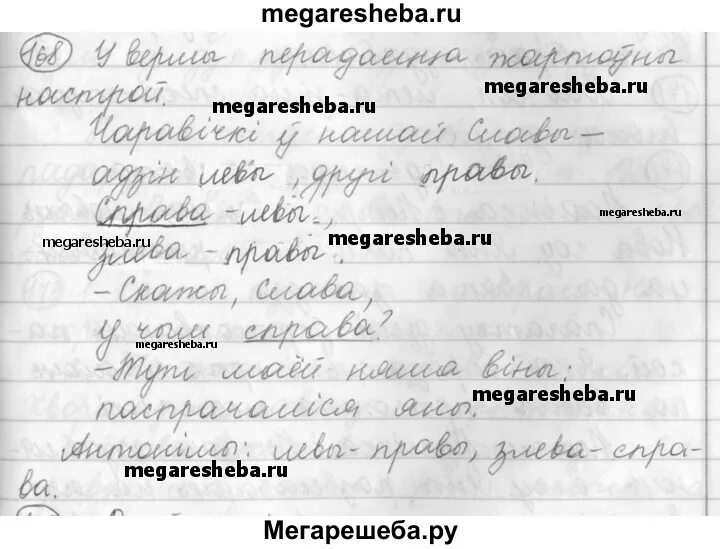 megaresheba.ru
168 У вершы перадаецца жартоўны
настрой. megaresheba.ru
megaresheba.ru
Чаравічкі ў нашай Славы –
адзін левы, другі правы.
Справа – левы., megaresheba.ru
megaresheba.ru megaresheba.ru
злева – правы.
– Скажы, Слава,
у чым справа?
megaresheba.ru
– Тут маёй няма віны:
megaresheba.ru
паспрачаліся яны.
Антонімы: левы – правы, злева – спра-
megaresheba.ru
ва.
Мегарешеба.ру